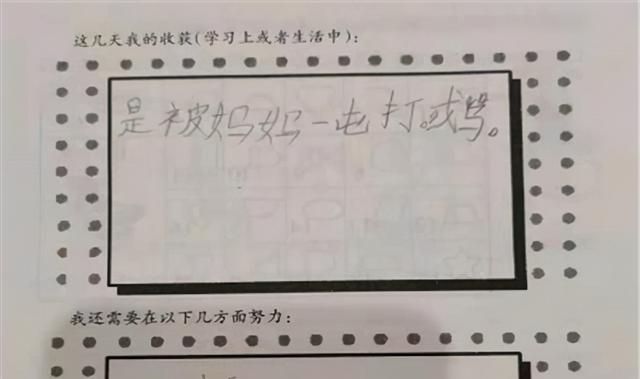 这几天我的收获(学习上或者生活中):
是被妈妈一屯打。或骂。
我还需要在以下几方面努力: